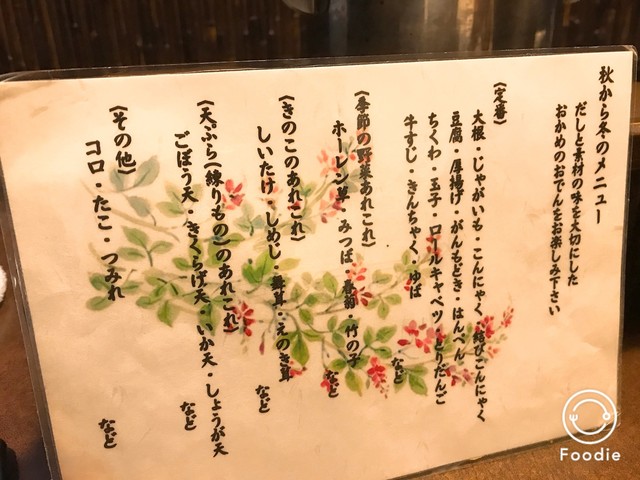 秋から冬のメニュー
だしと素材の味を大切にした
おかめのおでんをお楽しみ下さい
《定番》
大根・じゃがいも・こんにゃく・結びこんにゃく
豆腐・厚揚げ・がんもどき・はんぺん
ちくわ・玉子・ロールキャベツ・とりだんご
牛すじ・きんちゃく・ゆば など
《季節の野菜あれこれ》
ホーレン草・みつば・春菊・竹の子 など
《きのこのあれこれ》
しいたけ・しめじ・舞茸・えのき茸 など
《天ぷら(練りもの)のあれこれ》
ごぼう天・きくらげ天・いか天・しょうが天 など
《その他》
コロ・たこ・つみれ など
Foodie